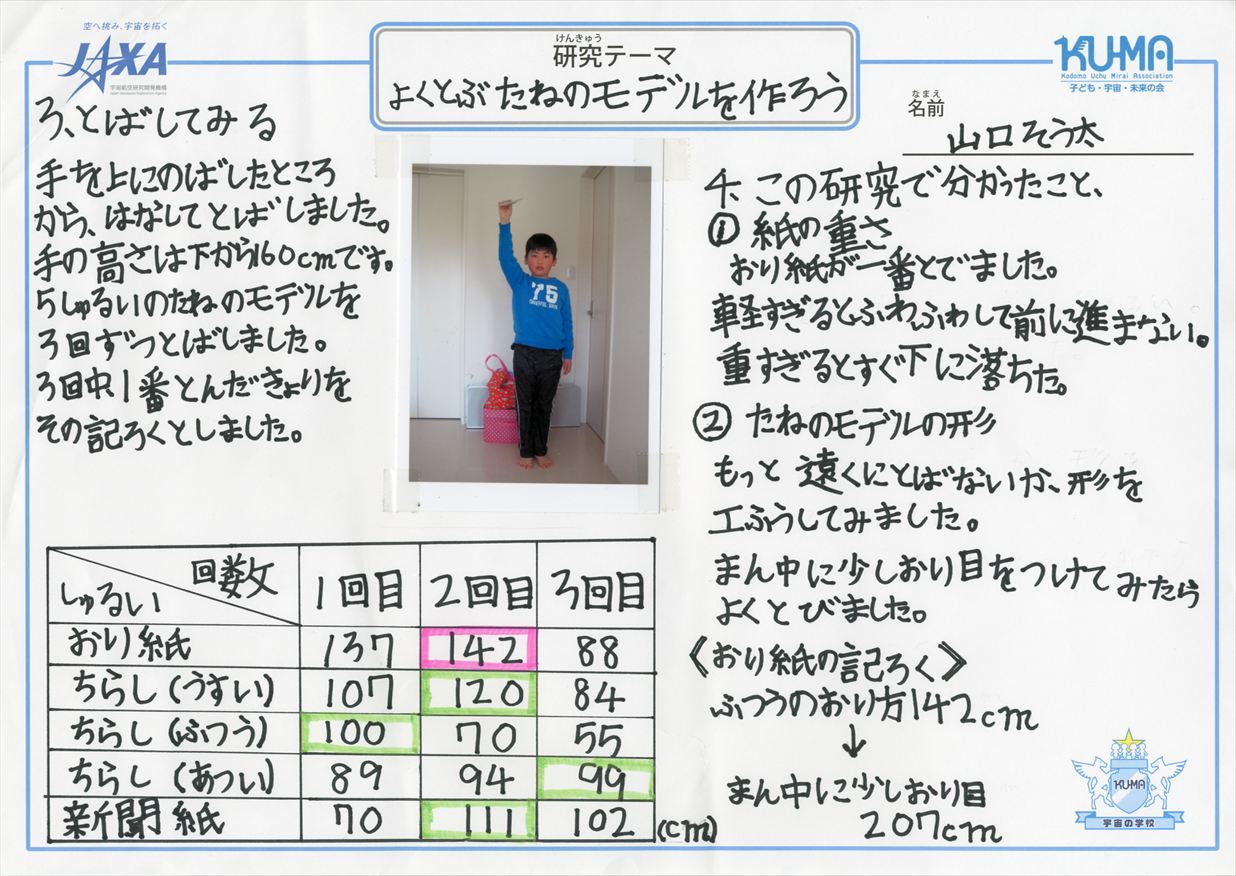 空へ挑み、宇宙を拓く
JAXA
宇宙航空研究開発機構
Japan Aerospace Exploration Agency
けんきゅう
研究テーマ
よくとぶたねのモデルを作ろう
KU-MA
Kodomo Uchu Mirai Association
子ども・宇宙・未来の会
なまえ
名前
山口そう太
3、とばしてみる
手を上にのばしたところ
から、はなしてとばしました。
手の高さは下から160cmです。
5しゅるいのたねのモデルを
3回ずつとばしました。
3回中、1番とんだきょりを
その記ろくとしました。
75
回数
しゅるい
1回目 2回目 3回目
おり紙 137 142 88
ちらし(うすい) 107 120 84
ちらし(ふつう) 100 70 55
ちらし(あつい) 89 94 99
新聞紙 70 111 102 (cm)
4、この研究で分かったこと、
① 紙の重さ
おり紙が一番とでました。
軽すぎるとふわふわして前に進まない。
重すぎるとすぐ下に落ちた。
② たねのモデルの形
もっと遠くにとばないか、形を
工ふうしてみました。
まん中に少しおり目をつけてみたら
よくとびました。
《おり紙の記ろく》
ふつうのおり方142cm
↓
まん中に少しおり目
207cm
KUMA
宇宙の学校